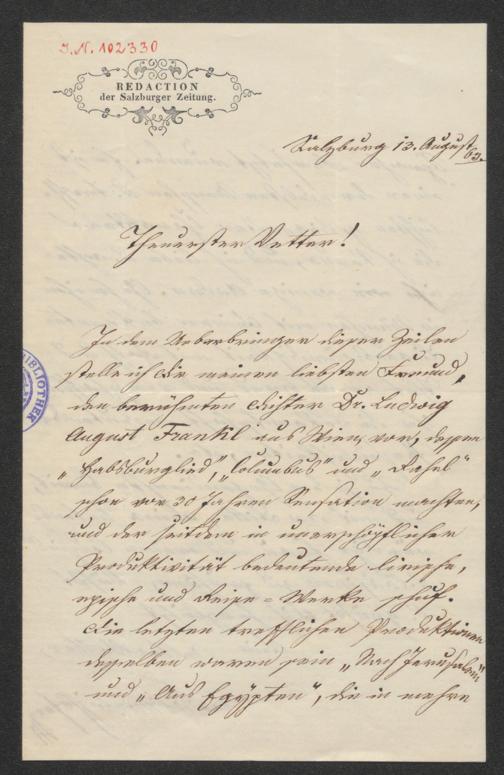 I.N. 102330
REDACTION
der Salzburger Zeitung.
Salzburg 13. August
63.
Theuerster Vetter!
In dem Ueberbringer dieser Zeilen
stelle ich Dir meinen liebsten Freund,
den berühmten Dichter Dr. Ludwig
August Frankl aus Wien, vor, dessen
„Habsburglied", „Columbus" und „Rahel"
schon vor 30 Jahren Sensation machten,
und der seitdem in unerschöpflicher
Produktivität bedeutende lirische,
epische und Reise-Werke schuf.
Die letzten trefflichen Produktionen
desselben waren sein „Nach Jerusalem"
und „Aus Egypten", die in mehre
BIBLIOTHEK